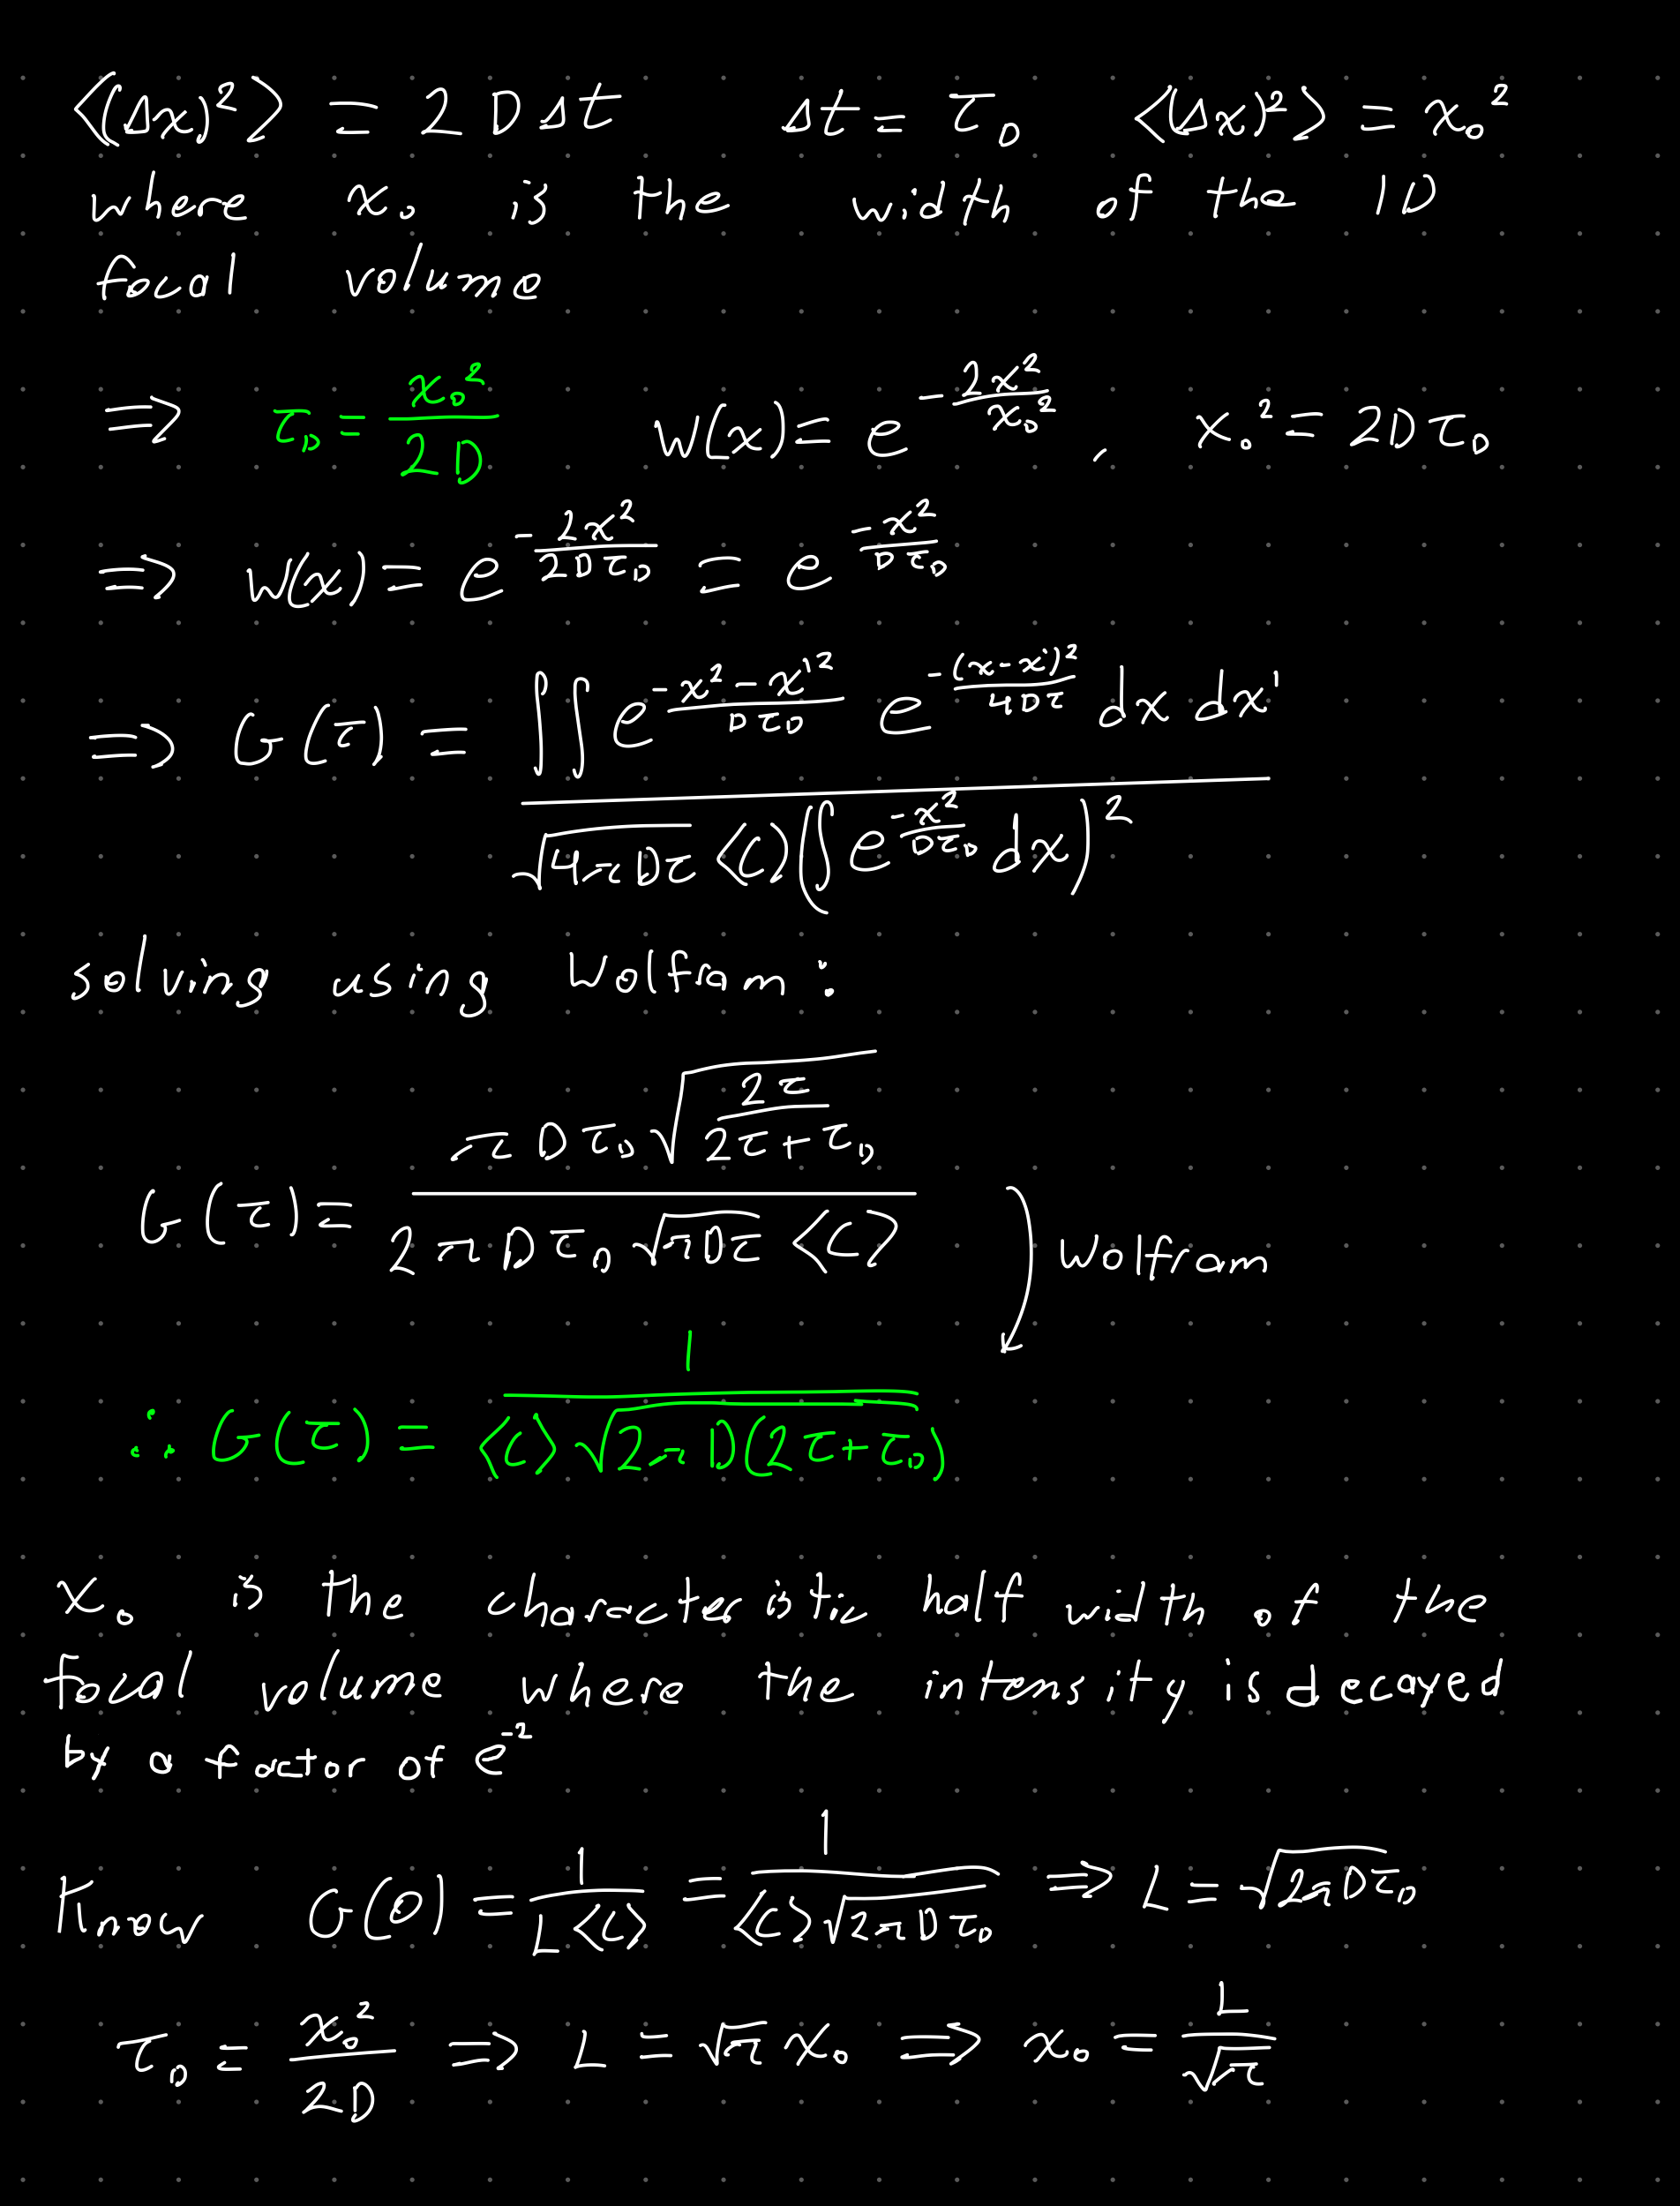 ⟨(Δx)²⟩ = 2DΔt Δt = τ_D ⟨(Δx)²⟩ = x₀²
where x₀ is the width of the 1D
focal volume
⇒ τ_D = x₀²/2D W(x) = e^(-2x²/x₀²), x₀² = 2Dτ_D
⇒ W(x) = e^(-2x²/2Dτ_D) = e^(-x²/Dτ_D)
⇒ G(τ) = ∫∫ e^((-x²-x'²)/Dτ_D) e^(-(x-x')²/4Dτ) dx dx' / √(4πDτ) ⟨C⟩ (∫ e^(-x²/Dτ_D) dx)²
solving using Wolfram:
G(τ) = πDτ_D √(2τ/(2τ+τ_D)) / 2πDτ_D √(πDτ) ⟨C⟩ Wolfram
∴ G(τ) = 1 / ⟨C⟩ √(2πD(2τ+τ_D))
x₀ is the characteristic half width of the
focal volume where the intensity is decayed
by a factor of e⁻²
Know G(0) = 1/L⟨C⟩ = 1/⟨C⟩√(2πDτ_D) ⇒ L = √(2πDτ_D)
τ_D = x₀²/2D ⇒ L = √π x₀ ⇒ x₀ = L/√π